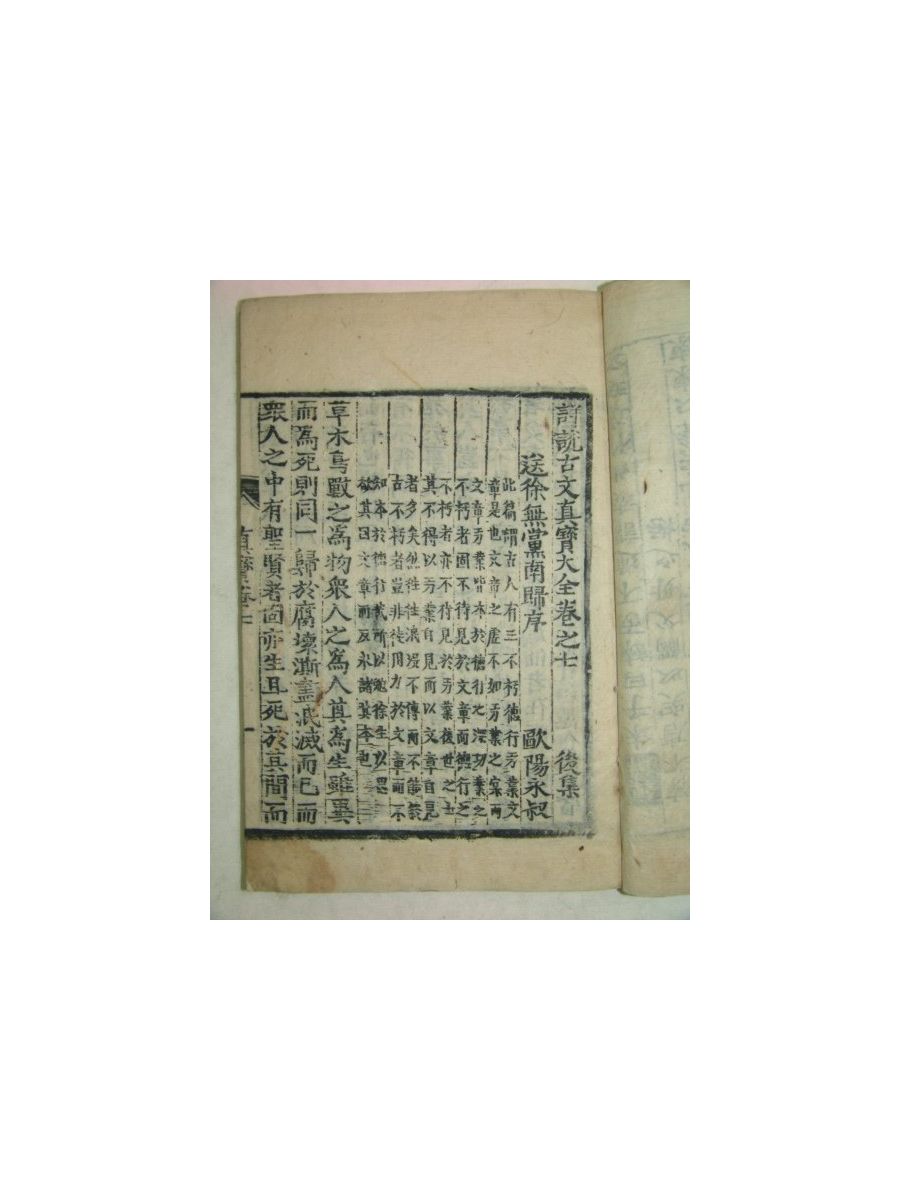 詳說古文真寶大全卷之七 後集
送徐無黨南歸序 歐陽永叔
此篇謂古人有三不朽德行功業文
章是也文章之虛不如功業之實而
文章功業皆本於德行之深功業之
不朽者固不待見於文章而德行之
不朽者亦不待見於功業後世之士
其不得以功業自見而以文章自見
者多矣然往往浪沒不傳而不能
古不朽者豈非徒用力於文章而不
知本於德行哉所以勉徐生以思
其曰文章而反求諸其本也
草木鳥獸之爲物衆人之爲人其爲生雖異
而爲死則同一歸於腐壞澌盡泯滅而已而
衆人之中有聖賢者固亦生且死於其間而
真寶卷七
一